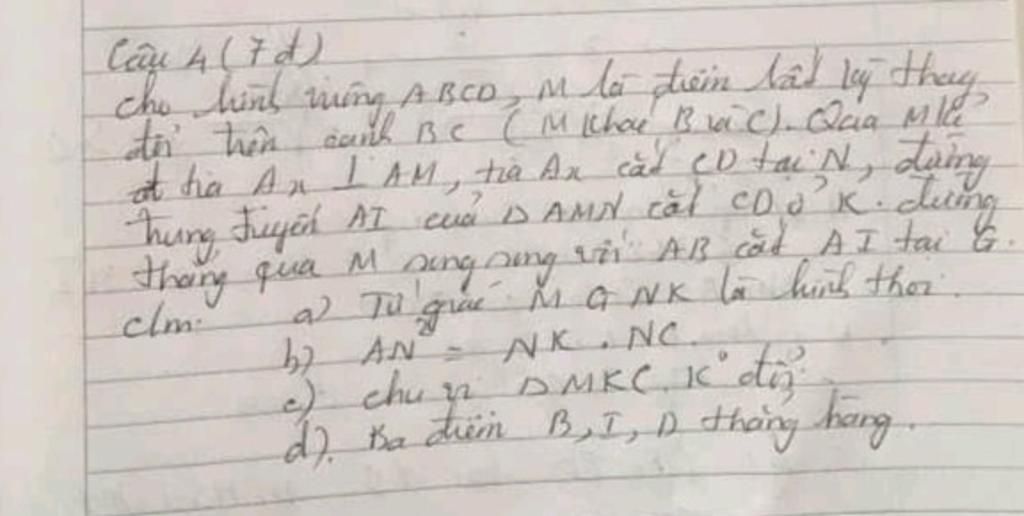 Câu 4 (7 đ)
cho hình vuông ABCD, M là điểm bất kỳ thay
đổi trên cạnh BC (M khác B và C). Qua M kẻ
tia Ax ⊥ AM, tia Ax cắt CD tại N, đường
trung tuyến AI của Δ AMN cắt CD ở K. đường
thẳng qua M song song với AB cắt AI tại G.
c/m: a) Tứ giác MGNK là hình thoi.
b) AN² = NK . NC.
c) chu vi Δ MKC K° đổi
d). Ba điểm B, I, D thẳng hàng.